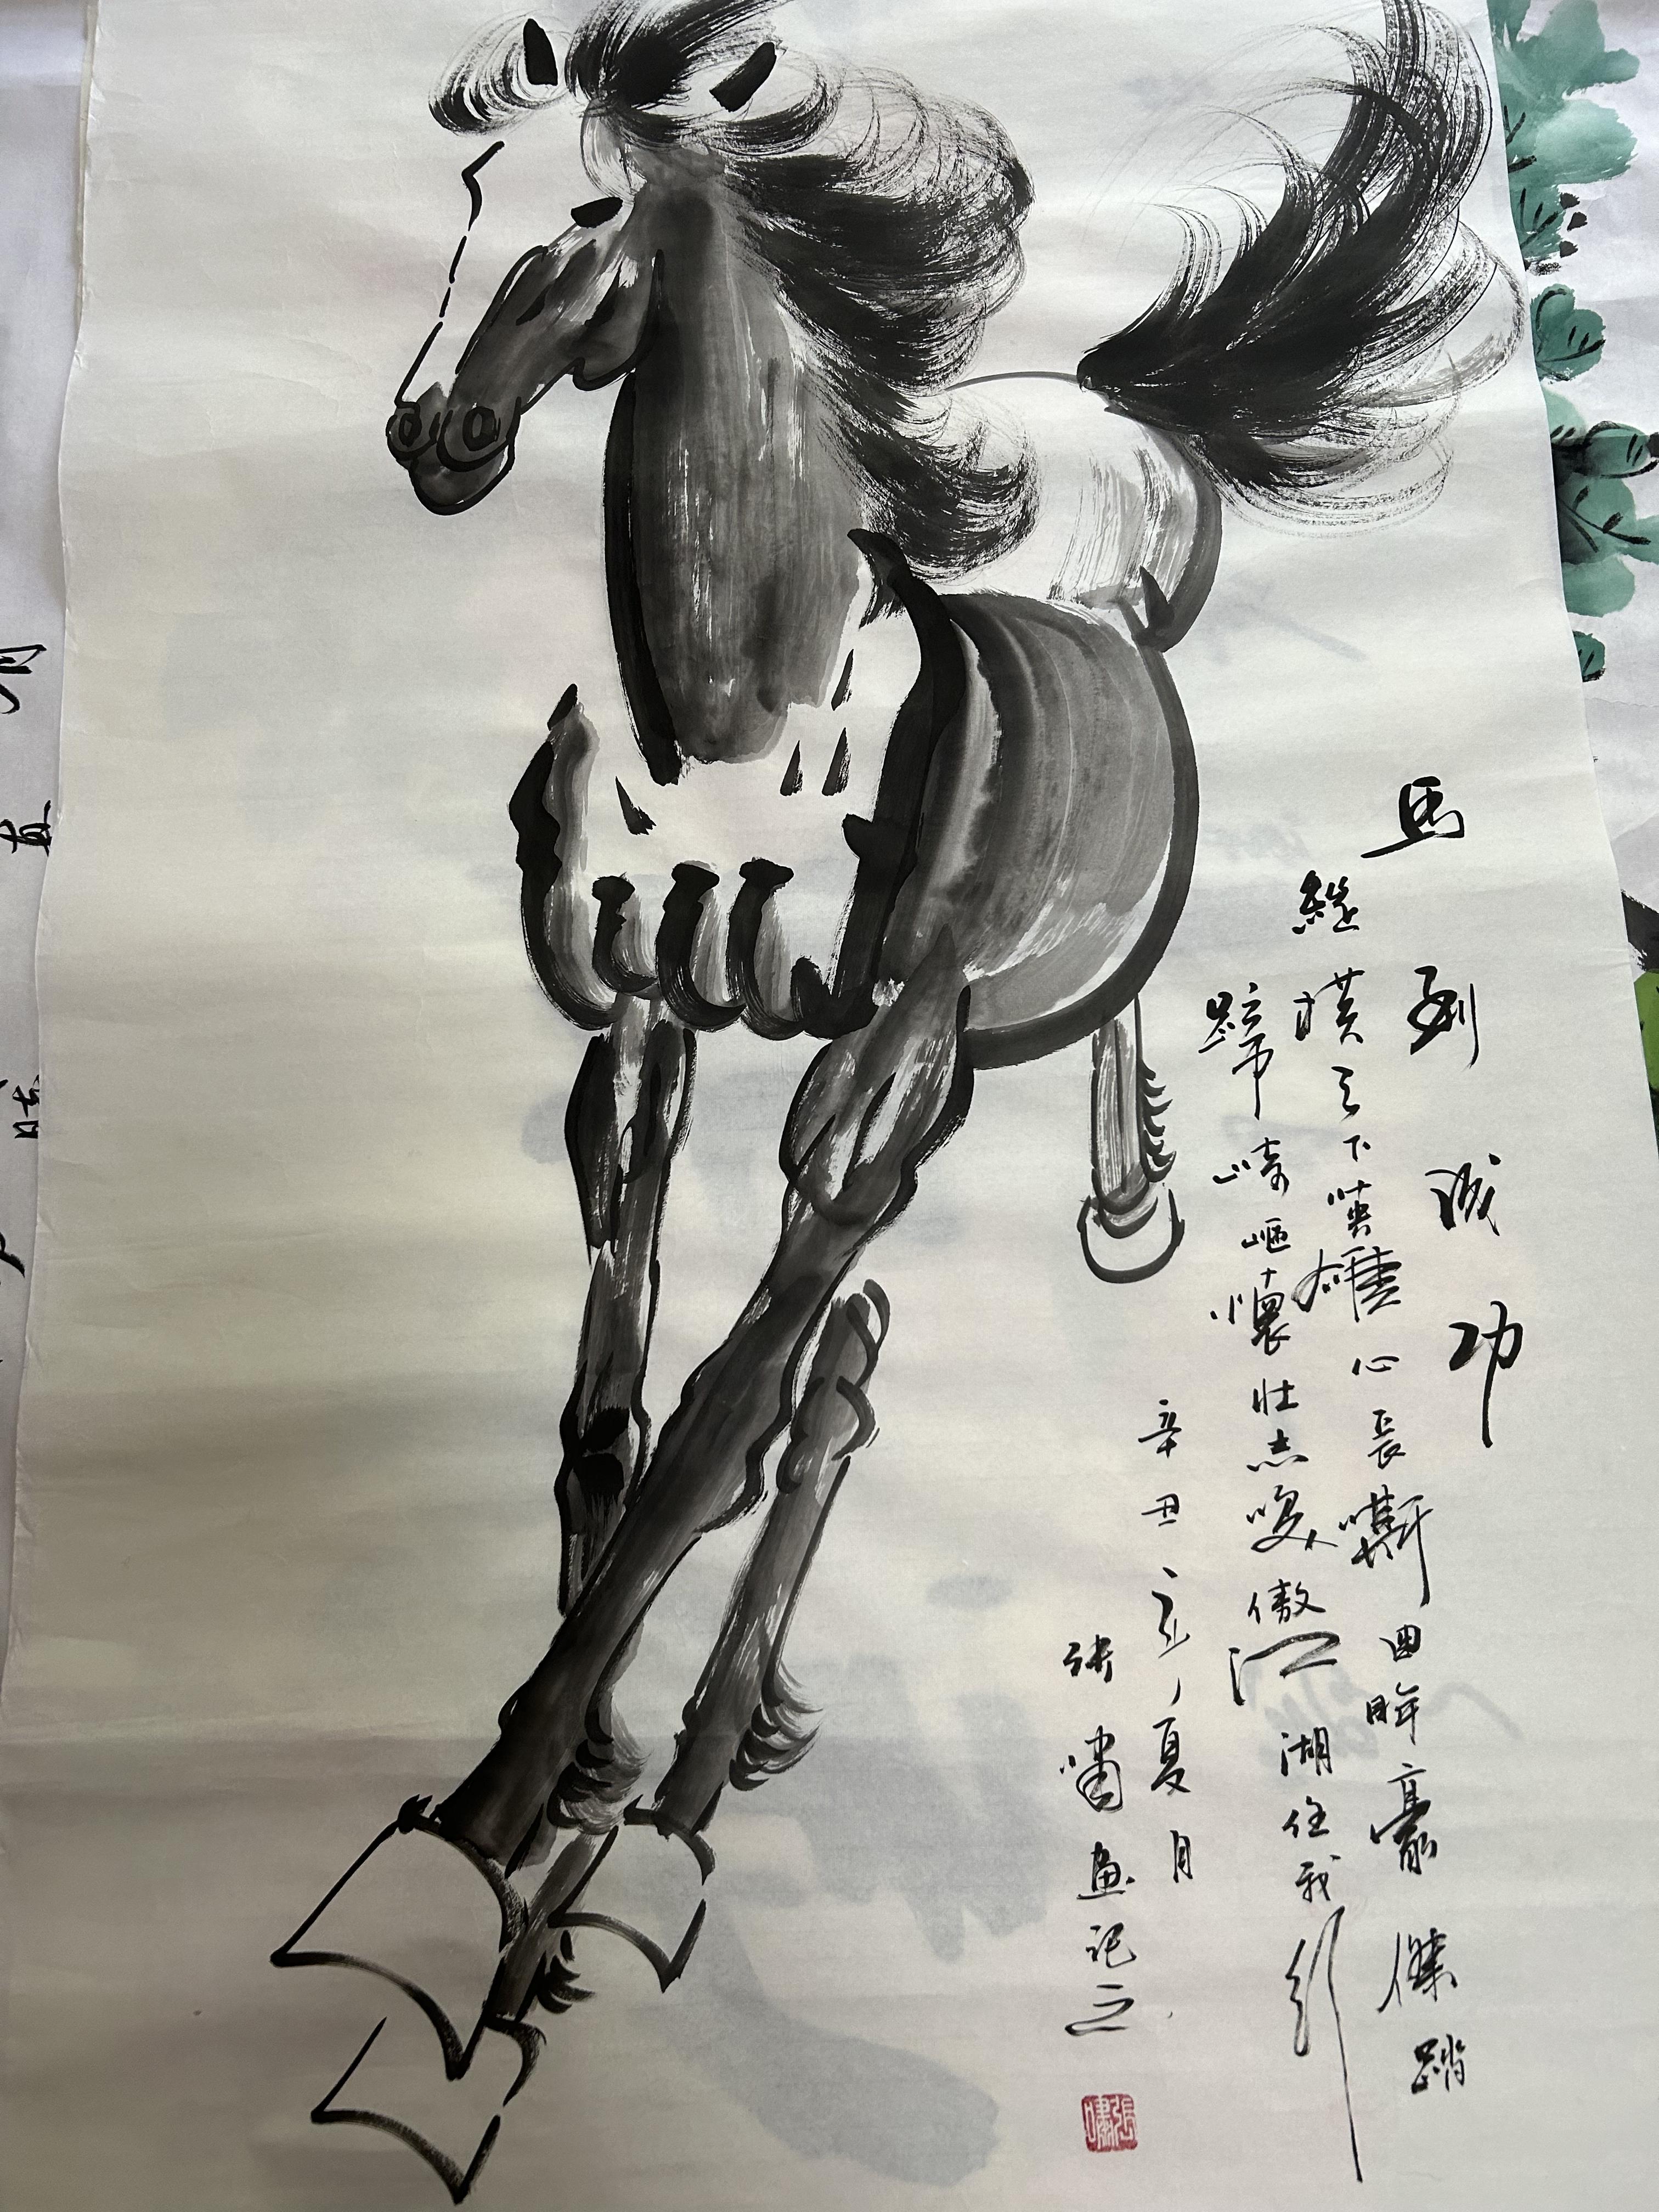 馬到成功
縱横天下英雄心長嘶回眸豪傑踏
蹄崎嶇懷壯志咲傲江湖任我行
辛丑之夏月
張嘯畫記之
張嘯